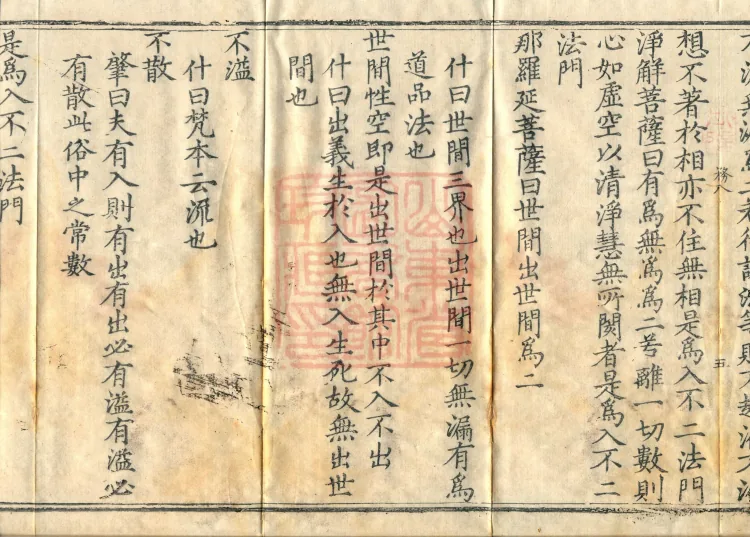 想不著於相亦不住無相是爲入不二法門
淨解菩薩曰有爲無爲爲二若離一切數則
心如虛空以清淨慧無所閡者是爲入不二
法門
那羅延菩薩曰世間出世間爲二
什曰世間三界也出世間一切無漏有爲
道品法也
世間性空即是出世間於其中不入不出
什曰出義生於入也無入生死故無出世
間也
不溢
什曰梵本云流也
不散
肇曰夫有入則有出有出必有溢有溢必
有散此俗中之常數
是爲入不二法門